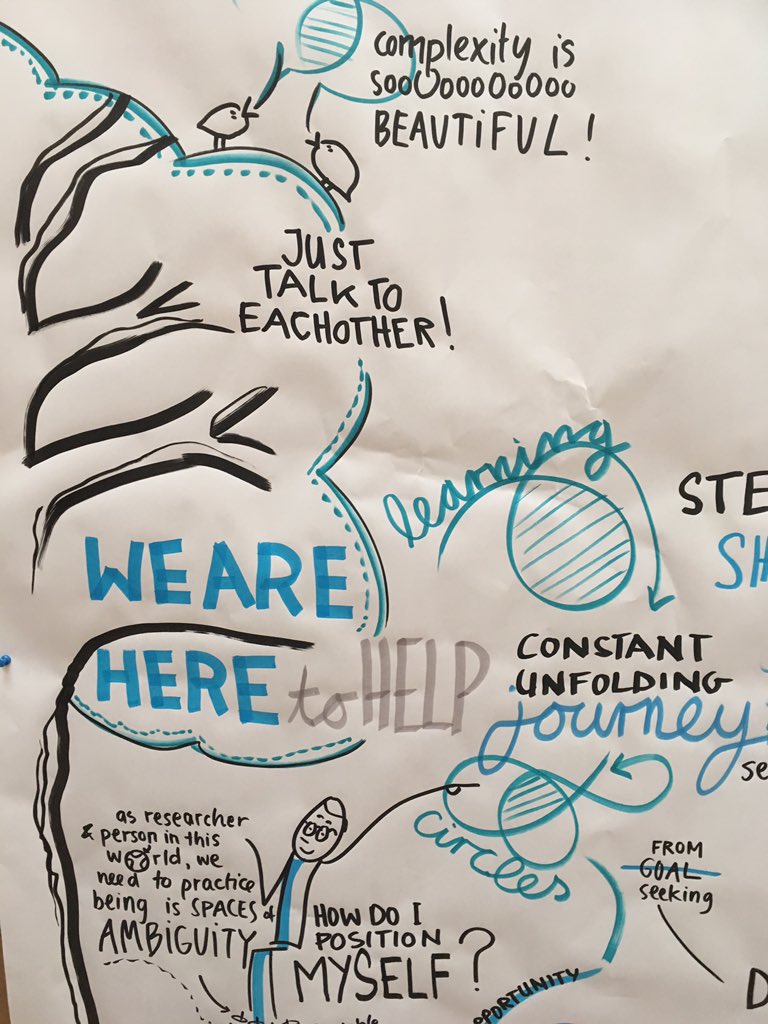 complexity is
sooOoooOoooo
BEAUTIFUL!
JUST
TALK TO
EACHOTHER!
learning
STE
SH
WE ARE
HERE to HELP
CONSTANT
UNFOLDING
journey
se
circles
as researcher
& person in this
world, we
need to practice
being is SPACES of
AMBIGUITY
HOW DO I
POSITION
MYSELF?
FROM
GOAL
seeking
PPORTUNITY
D